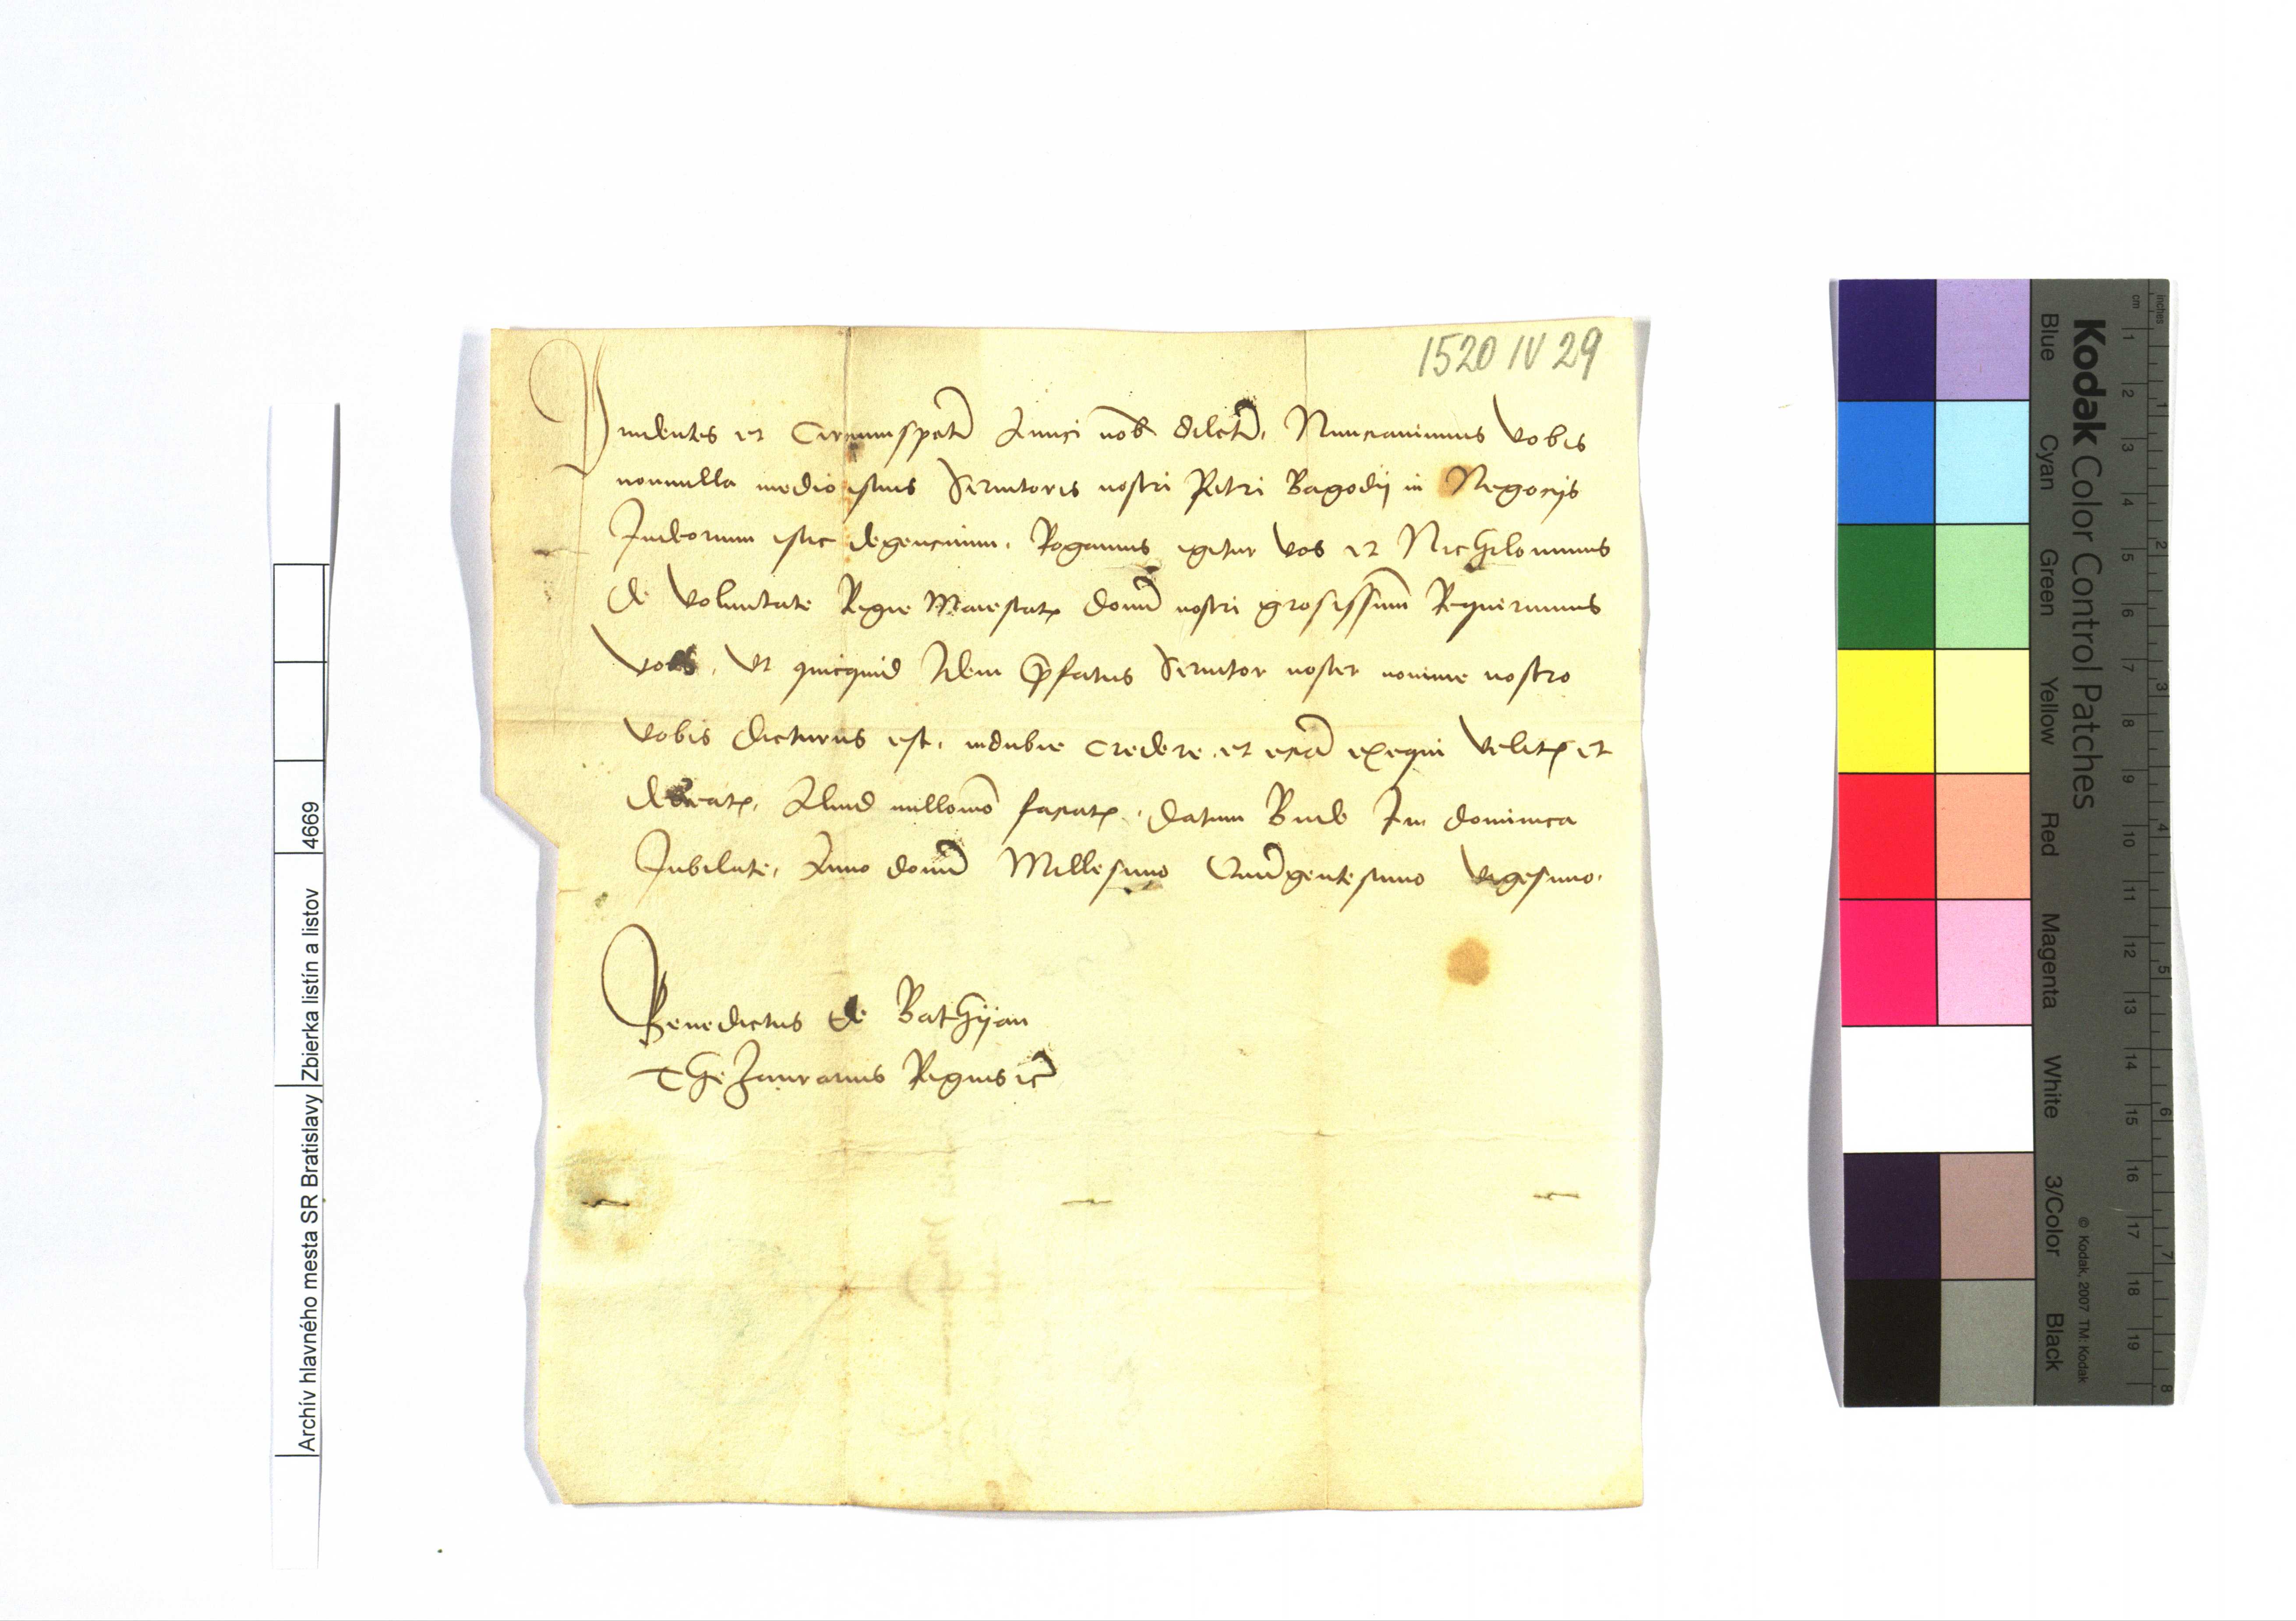 1520 IV 29
Prudentes et Circumspecti Amici nob dilecti, Nunciauimus Vobis
nonnulla medio istius Seruitoris nostri Petri Bagodij in Negocijs
Judeorum istic degencium, Rogamus igitur Vos et Nichilominus
de Voluntate Regie Maiestatis domi nostri grosissimi Requirimus
Vos, Vt quicquid Idem prefatus Seruitor noster nomine nostro
Vobis dicturus est, indubie credere et ecia exequi Velitis et
debeatis, Aliud nullomo faciatis, datum Bude In dominica
Jubilate, Anno domi Millesimo Quigentesimo Vigesimo,
Benedictus de Bathyan
Thezaurarius Regius etc
Archív hlavného mesta SR Bratislavy Zbierka listín a listov 4669
Kodak Color Control Patches
Blue Cyan Green Yellow Red Magenta White 3/Color Black
© Kodak, 2007 TM: Kodak
inches 1 2 3 4 5 6 7 8
cm 1 2 3 4 5 6 7 8 9 10 11 12 13 14 15 16 17 18 19